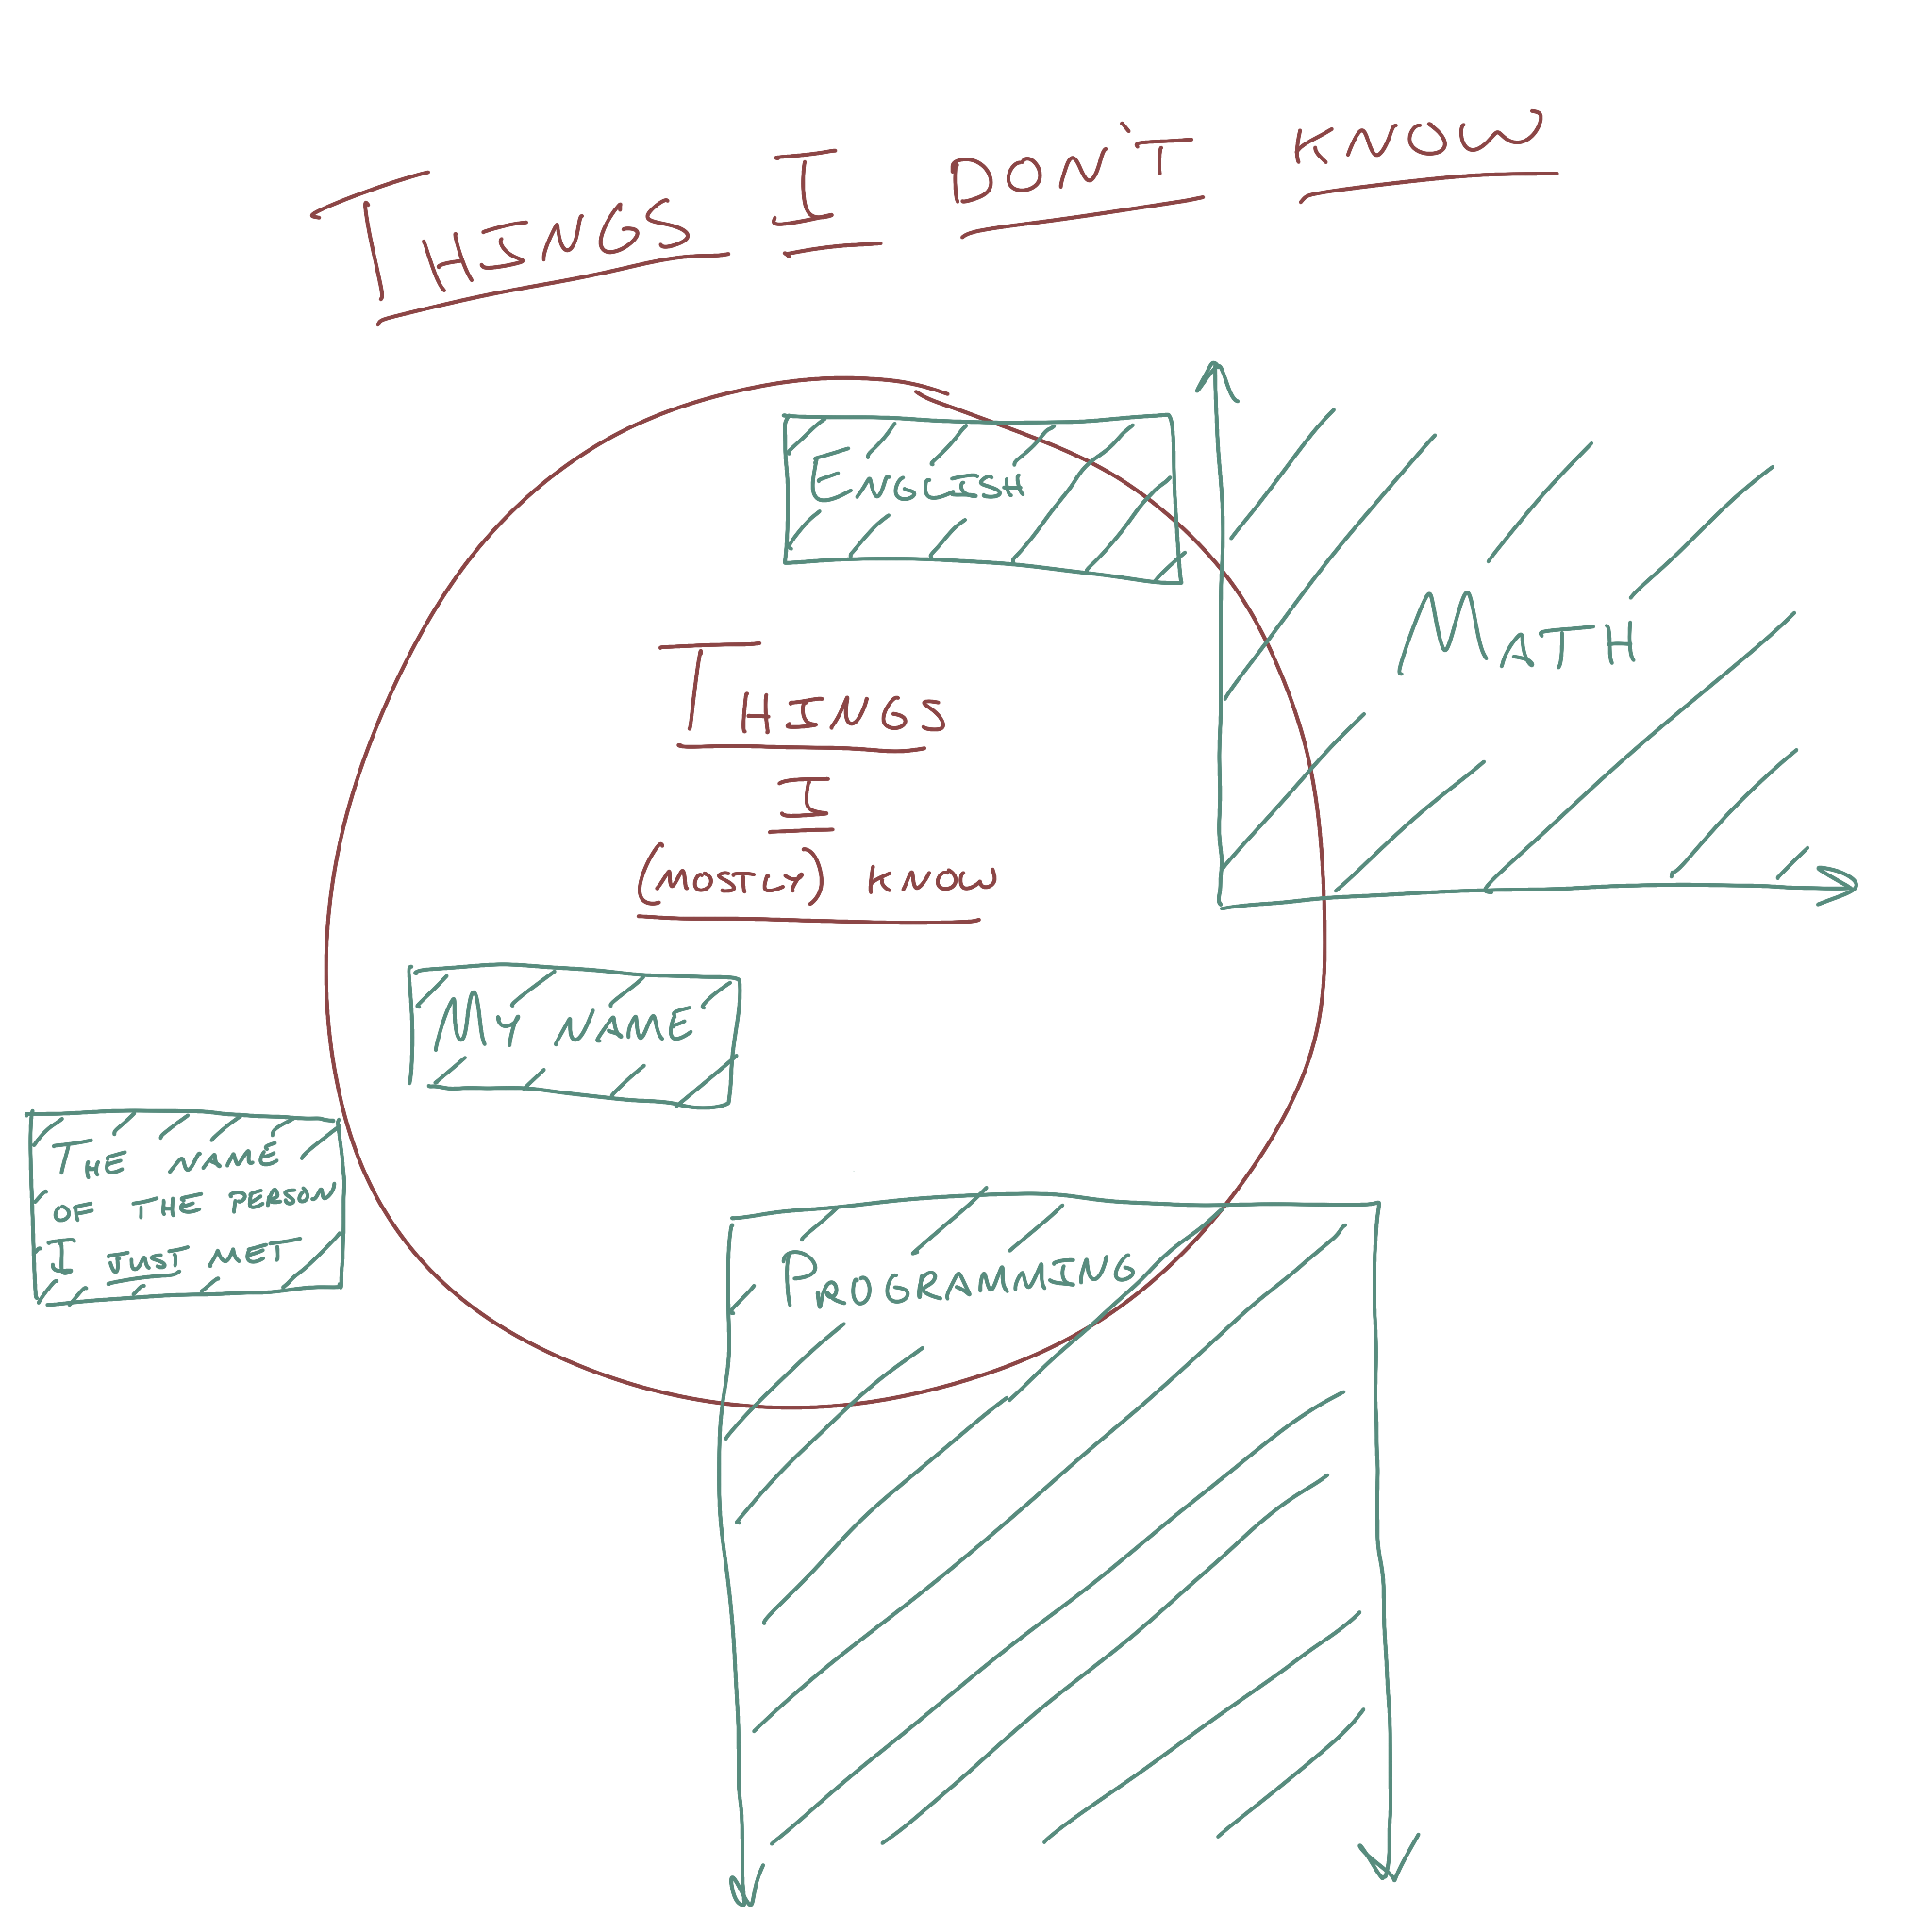 THINGS I DON'T KNOW
ENGLISH
MATH
THINGS
I
(MOSTLY) KNOW
MY NAME
THE NAME
OF THE PERSON
I JUST MET
PROGRAMMING